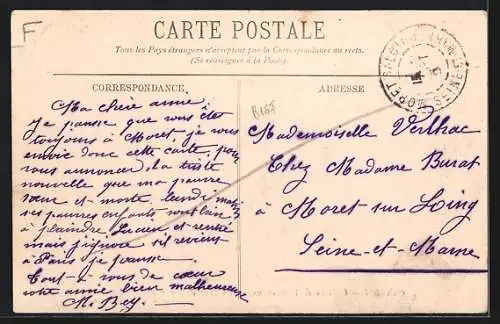 F
CARTE POSTALE
Tous les Pays étrangers n'acceptent pas la Correspondance au recto.
(Se renseigner à la Poste).
CORRESPONDANCE
ADRESSE
B167
Ma chère amie,
Je pense que vous êtes
toujours à Moret je vous
envoie donc cette carte, pour
vous annoncer, la triste
nouvelle que ma pauvre
sœur est morte lundi matin
ses pauvres enfants sont bien
à plaindre Lucien est rentré
mais j'ignore s'il reviens
à Paris je pense.
Tout à vous de cœur
votre amie bien malheureuse
M. Bey.
Mademoiselle Verlhac
Chez Madame Burat
à Moret sur Loing
Seine-et-Marne